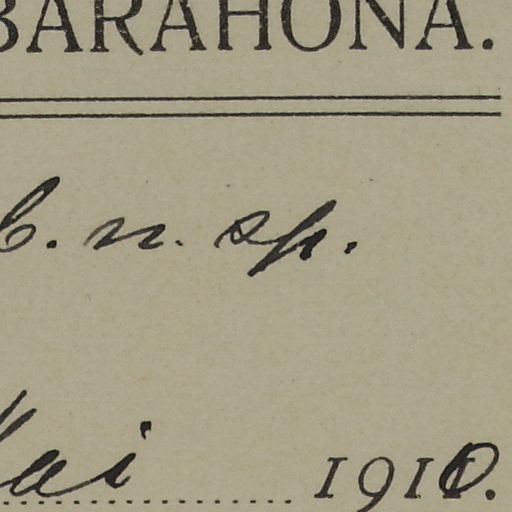 BARAHONA.
b. n. sp.
Mai 1910.